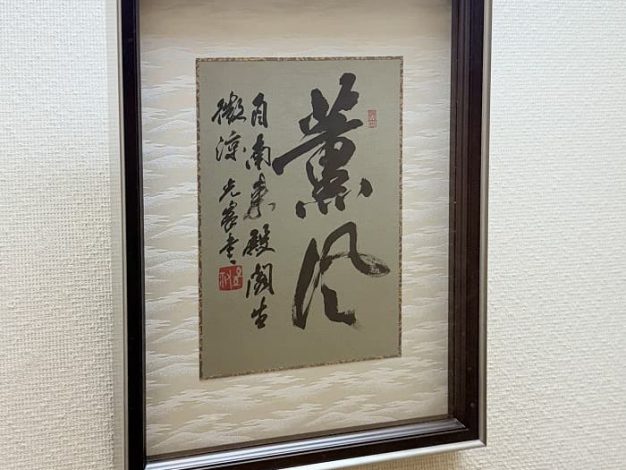 薫風
自南来殿閣生
微涼 光